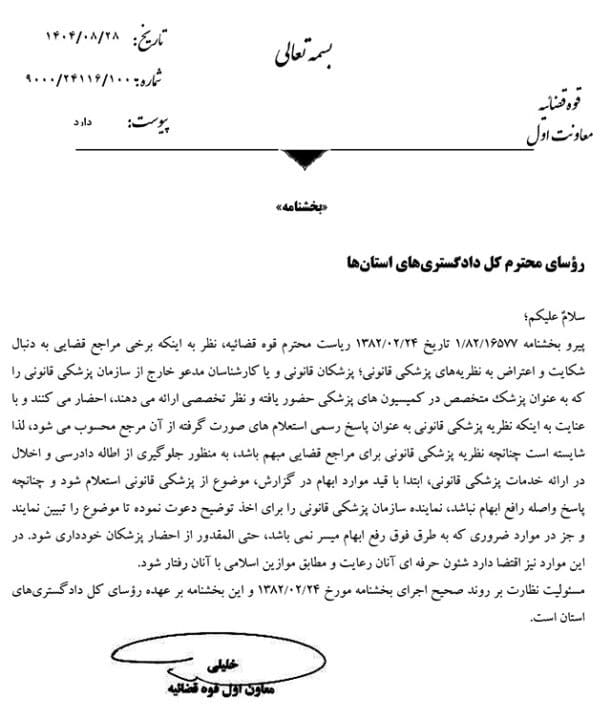 بسمه تعالی
تاریخ: ۱۴۰۴/۰۸/۲۸
شماره: ۹۰۰۰/۲۴۱۱۶/۱۰۰
پیوست: دارد
قوه قضائیه
معاونت اول
«بخشنامه»
رؤسای محترم کل دادگستری‌های استان‌ها
سلامٌ علیکم؛
پیرو بخشنامه ۱/۸۲/۱۶۵۷۷ تاریخ ۱۳۸۲/۰۲/۲۴ ریاست محترم قوه قضائیه، نظر به اینکه برخی مراجع قضایی به دنبال
شکایت و اعتراض به نظریه‌های پزشکی قانونی؛ پزشکان قانونی و یا کارشناسان مدعو خارج از سازمان پزشکی قانونی را
که به عنوان پزشک متخصص در کمیسیون های پزشکی حضور یافته و نظر تخصصی ارائه می دهند، احضار می کنند و با
عنایت به اینکه نظریه پزشکی قانونی به عنوان پاسخ رسمی استعلام های صورت گرفته از آن مرجع محسوب می شود، لذا
شایسته است چنانچه نظریه پزشکی قانونی برای مراجع قضایی مبهم باشد، به منظور جلوگیری از اطاله دادرسی و اخلال
در ارائه خدمات پزشکی قانونی، ابتدا با قید موارد ابهام در گزارش، موضوع از پزشکی قانونی استعلام شود و چنانچه
پاسخ واصله رافع ابهام نباشد، نماینده سازمان پزشکی قانونی را برای اخذ توضیح دعوت نموده تا موضوع را تبیین نمایند
و جز در موارد ضروری که به طرق فوق رفع ابهام میسر نمی باشد، حتی المقدور از احضار پزشکان خودداری شود. در
این موارد نیز اقتضا دارد شئون حرفه ای آنان رعایت و مطابق موازین اسلامی با آنان رفتار شود.
مسئولیت نظارت بر روند صحیح اجرای بخشنامه مورخ ۱۳۸۲/۰۲/۲۴ و این بخشنامه بر عهده رؤسای کل دادگستری‌های
استان است.
خلیلی
معاون اول قوه قضائیه